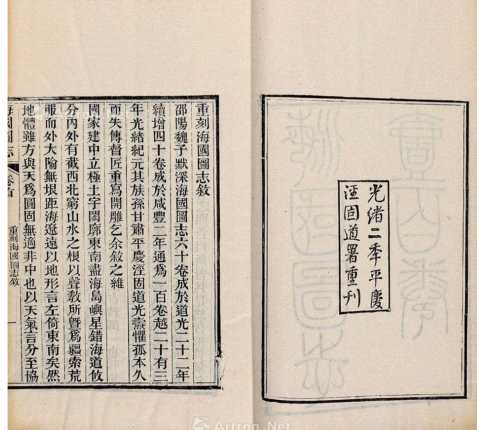 光緒二季平慶
涇固道署重刊
重刻海國圖志敘
邵陽魏子默深海國圖志六十卷成於道光二十二年
續增四十卷成於咸豐二年通爲一百卷越二十有三
年光緒紀元其族孫甘肅平慶涇固道光燾懼孤本久
而失傳督匠重爲開雕乞余敘之維
國家建中立極土宇閎廓東南盡海島嶼星錯海道攸
分內外有截西北窮山水之根以聲教所曁爲疆索荒
服而外大隃無垠距海遼遠以地形言左倚東南矣然
地體雖方與天爲圓固無適非中也以天氣言分至協
海國圖志
重刻海國圖志敘
一
Artron.Net